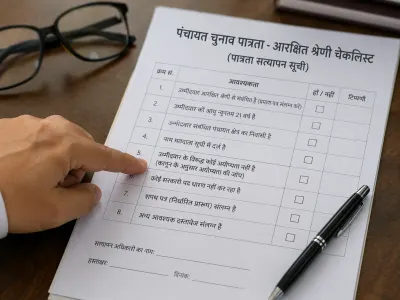 पंचायत चुनाव पात्रता - आरक्षित श्रेणी चेकलिस्ट
(पात्रता सत्यापन सूची)
क्रम सं. आवश्यकता हाँ / नहीं टिप्पणी
1. उम्मीदवार आरक्षित श्रेणी से संबंधित है (प्रमाण पत्र संलग्न करें)
2. उम्मीदवार की आयु न्यूनतम 21 वर्ष है
3. उम्मीदवार संबंधित पंचायत क्षेत्र का निवासी है
4. नाम मतदाता सूची में दर्ज है
5. उम्मीदवार के विरुद्ध कोई अयोग्यता नहीं है
(कानून के अनुसार अयोग्यता की जांच)
कोई सरकारी पद धारण नहीं कर रहा है
7. शपथ पत्र (निर्धारित प्रारूप) संलग्न है
8. अन्य आवश्यक दस्तावेज संलग्न हैं
सत्यापन अधिकारी का नाम:
हस्ताक्षर: दिनांक: